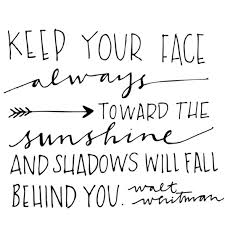 KEEP YOUR FACE
always
TOWARD THE
sunshine
AND SHADOWS WILL FALL
BEHIND YOU. walt
whitman